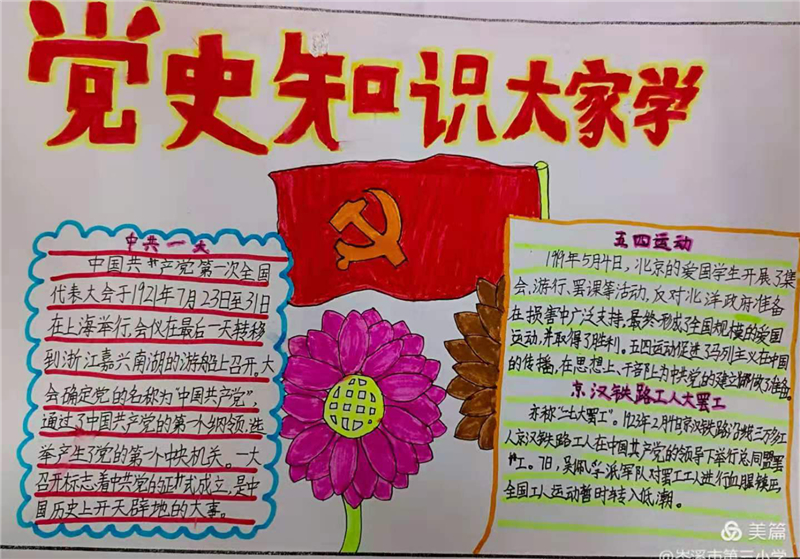 党史知识大家学
中共一大
中国共产党第一次全国
代表大会于1921年7月23日至31日
在上海举行,会仪在最后一天转移
到浙江嘉兴南湖的游船上召开。大
会确定党的名称为“中国共产党”
通过了中国共产党的第一个纲领,选
举产生了党的第一个中央机关。一大
召开标志着中共党的正式成立,是中
国历史上开天辟地的大事。
五四运动
1919年5月4日,北京的爱国学生开展了集
会、游行、罢课等活动,反对北洋政府准备
在损害中广泛支持,最终形成了全国规模的爱国
运动,并取得了胜利。五四运动促进了马列主义在中国
的传播,在思想上、干部上为中共党的建立做了准备。
京汉铁路工人大罢工
亦称“二七大罢工”。1923年2月4日京汉铁路沿线三万多工
人京汉铁路工人在中国共产党的领导下举行总同盟罢
工。7日,吴佩孚派军队对罢工工人进行血腥镇压
全国工人运动暂时转入低潮。
美篇
@岑溪市第三小学